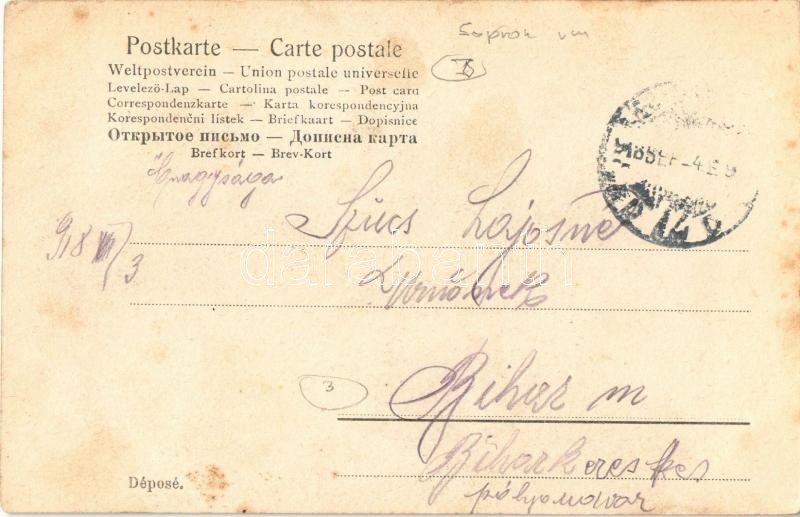 Sopron vm
Postkarte — Carte postale
Weltpostverein — Union postale universelle
Levelező-Lap — Cartolina postale — Post card
Correspondenzkarte — Karta korespondencyjna
Korespondenční lístek — Briefkaart — Dopisnice
Открытое письмо — Дописна карта
Brefkort — Brev-Kort
Őnagysága
Szűcs Lajosné
918 VII/3
Urnőnek
3
Bihar m
Biharkeresztes
pályaudvar
Déposé.